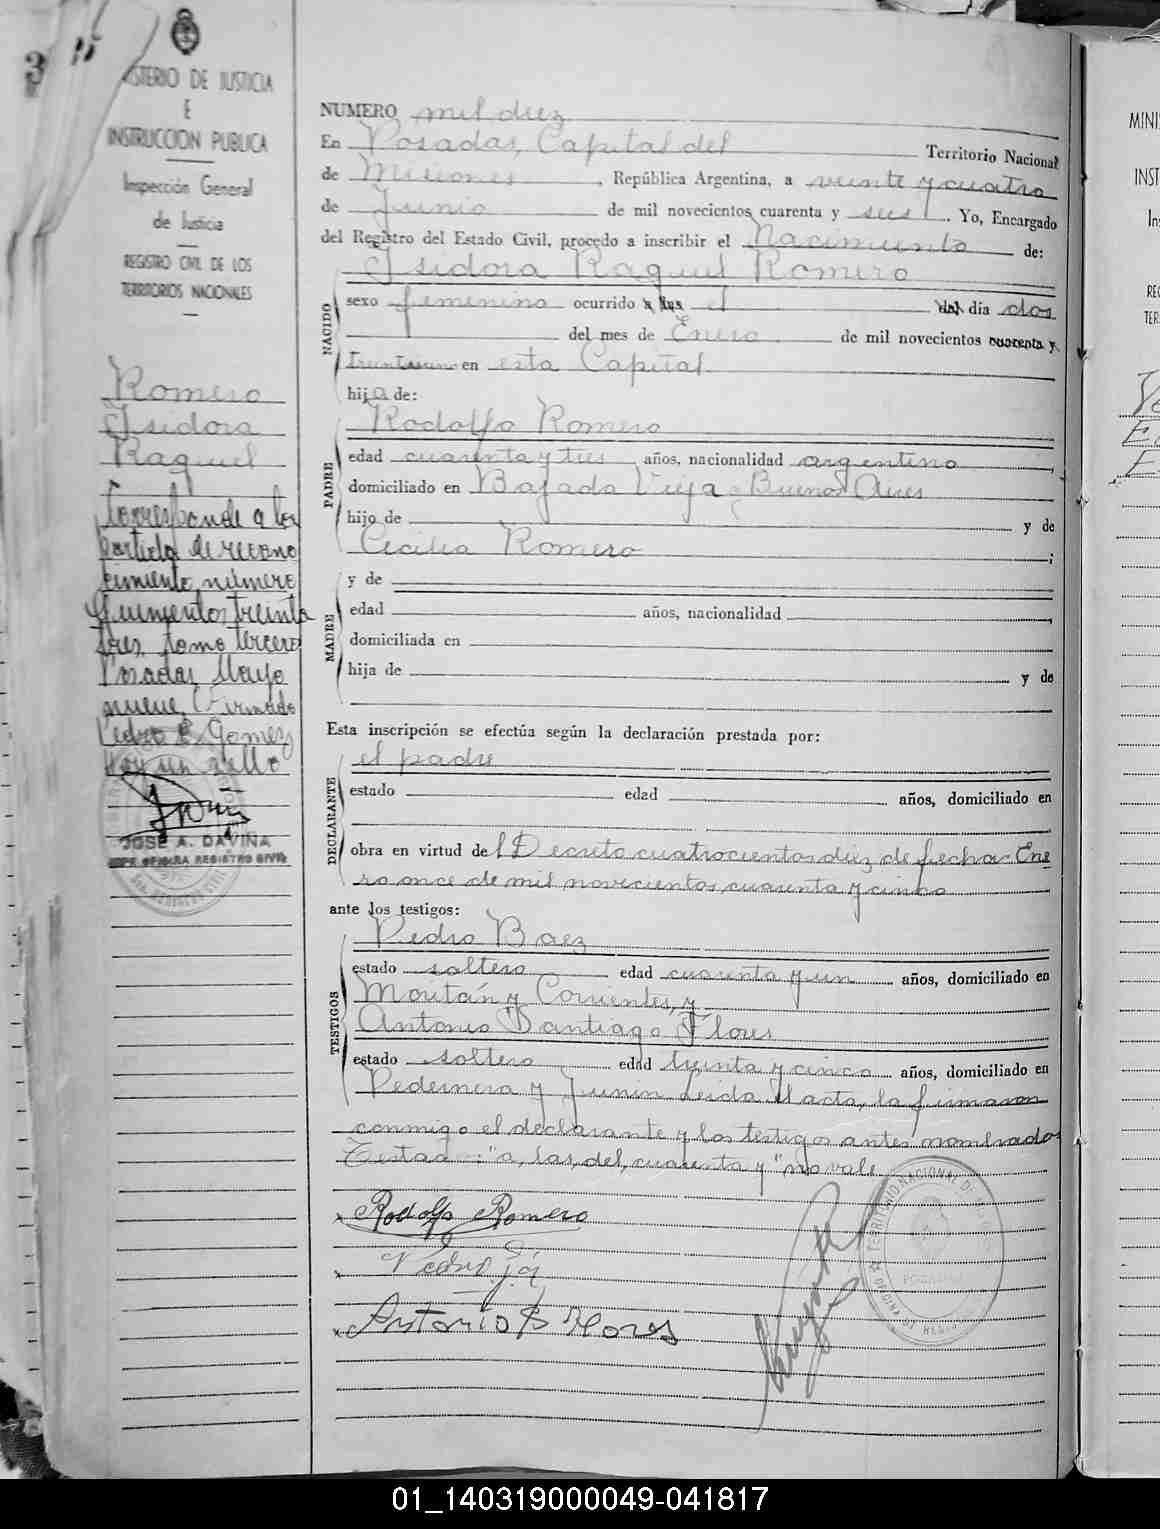 MINISTERIO DE JUSTICIA
E
INSTRUCCION PUBLICA
Inspección General
de Justicia
REGISTRO CIVIL DE LOS
TERRITORIOS NACIONALES
Romero
Isidora
Raquel
Corresponde a la
partida de recono
cimiento número
quinientos treinta
tres tomo tercero
Posadas Mayo
nueve (Firmado
Pedro E. Gomez
Hay un sello
JOSE A. DAVIÑA
NUMERO mil diez
En Posadas, Capital del Territorio Nacional
de Misiones, República Argentina, a veinte y cuatro
de Junio de mil novecientos cuarenta y seis. Yo, Encargado
del Registro del Estado Civil, procedo a inscribir el Nacimiento de:
Isidora Raquel Romero
NACIDO
sexo femenino ocurrido a las el del día dos
del mes de Enero de mil novecientos cuarenta y
treintiuno en esta Capital
hija de:
PADRE
Rodolfo Romero
edad cuarenta y tres años, nacionalidad argentino
domiciliado en Bajada Vieja Buenos Aires
hijo de y de
Cecilia Romero;
MADRE
y de
edad años, nacionalidad
domiciliada en
hija de y de
Esta inscripción se efectúa según la declaración prestada por:
DECLARANTE
el padre
estado edad años, domiciliado en
obra en virtud del Decreto cuatrocientos diez de fecha Ene
ro once de mil novecientos cuarenta y cinco
ante los testigos:
TESTIGOS
Pedro Baez
estado soltero edad cuarenta y un años, domiciliado en
y Corrientes, y
Antonio Santiago Flores
estado soltero edad treinta y cinco años, domiciliado en
Pedernera y Junin Leida el acta, la firmaron
conmigo el declarante y los testigos antes nombrados
Testado: "a, las, del, cuarenta y" no vale
Rodolfo Romero
Antonio S Flores
MINI
INST
REG
TER
01_140319000049-041817